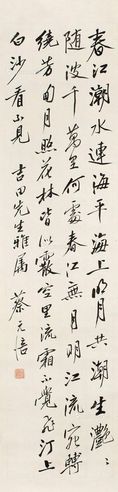 春江潮水連海平海上明月共潮生灧〻
随波千萬里何處春江無月明江流宛轉
繞芳甸月照花林皆似霰空里流霜不覺飛汀上
白沙看不見 吉田先生雅属 蔡元培